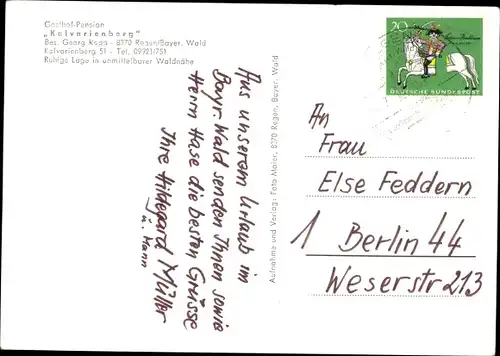 Gasthof-Pension
„Kalvarienberg"
Bes. Georg Kopp - 8370 Regen/Bayer. Wald
Kalvarienberg 51 - Tel. 09921/751
Ruhige Lage in unmittelbarer Waldnähe
Aus unserem Urlaub im
Bayr. Wald senden Ihnen sowie
Herrn Hase die besten Grüsse
Ihre Hildegard Müller
u. Mann
Aufnahme und Verlag: Foto Maier, 8370 Regen, Bayer. Wald
20
DEUTSCHE BUNDESPOST
An
Frau
Else Feddern
1 Berlin 44
Weserstr 213